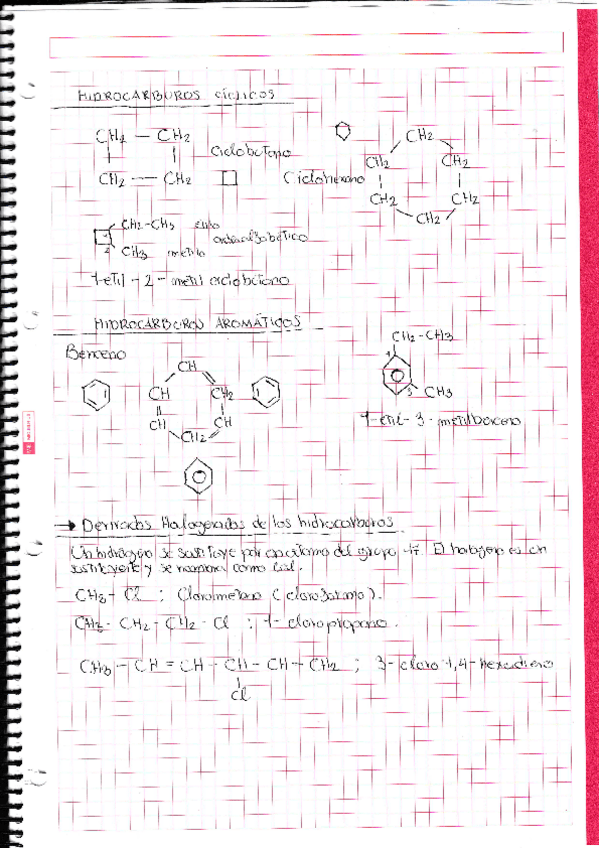 HIDROCARBUROS CÍCLICOS
CH2 — CH2
CH2 — CH2
Ciclobutano
Ciclohexano
CH2
CH2 CH2
CH2 CH2
CH2
1 CH2-CH3 etilo
2 CH3 metilo
1-etil-2-metil ciclobutano
HIDROCARBUROS AROMÁTICOS
Benceno
CH
CH CH2
CH CH
CH2
CH2-CH3
1
3 CH3
1-etil-3-metilbenceno
→ Derivados Halogenados de los hidrocarburos
Un hidrógeno se sustituye por un átomo del grupo 17. El halógeno es un
sustituyente y se nombra como tal.
CH3-Cl : Clorometano (cloroformo).
CH2-CH2-CH2-Cl : 1-cloropropano.
CH3-CH=CH-CH-CH-CH2 ; 3-cloro-1,4-hexadieno
Cl